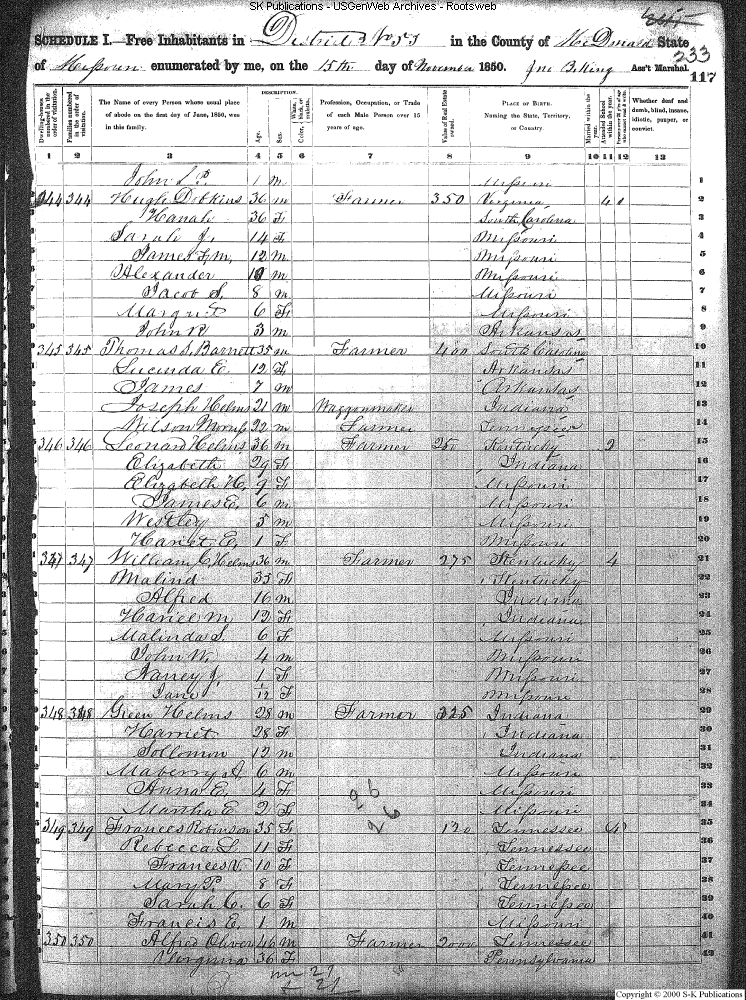 SK Publications - USGenWeb Archives - Rootsweb
SCHEDULE I.—Free Inhabitants in District No 53 in the County of McDonald State
233
of Missouri enumerated by me, on the 15th day of November 1850. Jno B. King Ass't Marshal.
117
DESCRIPTION.
Dwelling-houses numbered in the order of visitation.
Families numbered in the order of visitation.
The Name of every Person whose usual place of abode on the first day of June, 1850, was in this family.
Age.
Sex.
Color, White, black, or mulatto.
Profession, Occupation, or Trade of each Male Person over 15 years of age.
Value of Real Estate owned.
PLACE OF BIRTH. Naming the State, Territory, or Country.
Married within the year.
Attended School within the year.
Persons over 20 y'rs of age who cannot read & write.
Whether deaf and dumb, blind, insane, idiotic, pauper, or convict.
1 2 3 4 5 6 7 8 9 10 11 12 13
John 1 m Missouri 1
344 344 Hugh Dobkins 36 m Farmer 350 Virginia 2
Hanah 36 F South Carolina 3
Sarah J. 14 F Missouri 4
James F. M. 12 m Missouri 5
Alexander 10 m Missouri 6
Jacob S. 8 m Missouri 7
6 F Missouri 8
John R 3 m Arkansas 9
345 345 Thomas S. Barnett 35 m Farmer 400 South Carolina 10
Lucinda E. 12 F Arkansas 11
James 7 m Arkansas 12
Joseph Helms 21 m Waggonmaker Indiana 13
Wilson 22 m Farmer Tennessee 14
346 346 Leonard Helms 36 m Farmer 250 Kentucky 2 15
Elizabeth 29 F Indiana 16
Elizabeth H. 9 F Missouri 17
James E. 6 m Missouri 18
Westley 3 m Missouri 19
Hariet E. 1 F Missouri 20
347 347 William C. Helms 36 m Farmer 275 Kentucky 4 21
Malind 33 F Kentucky 22
Alfred 16 m Indiana 23
M 12 F Indiana 24
Malinda S. 6 F Missouri 25
John W. 4 m Missouri 26
Nancy J. 1 F Missouri 27
Jane 1/12 F Missouri 28
348 348 Green Helms 28 m Farmer 325 Indiana 29
Harriet 28 F Indiana 30
Sollomon 12 m Indiana 31
Maberry A 6 m Missouri 32
Anna E. 4 F Missouri 33
Martha E 2 F Missouri 34
26
26
349 349 Frances Robinson 35 F 120 Tennessee 4 35
Rebecca L. 11 F Tennessee 36
Frances V. 10 F Tennessee 37
Mary P. 8 F Tennessee 38
Sarah C. 6 F Tennessee 39
Francis E. 1 m Missouri 40
350 350 Alfred Oliver 46 m Farmer 2000 Tennessee 41
Verginia 36 F Pennsylvania 42
m 21
F 21
Copyright © 2000 S-K Publications